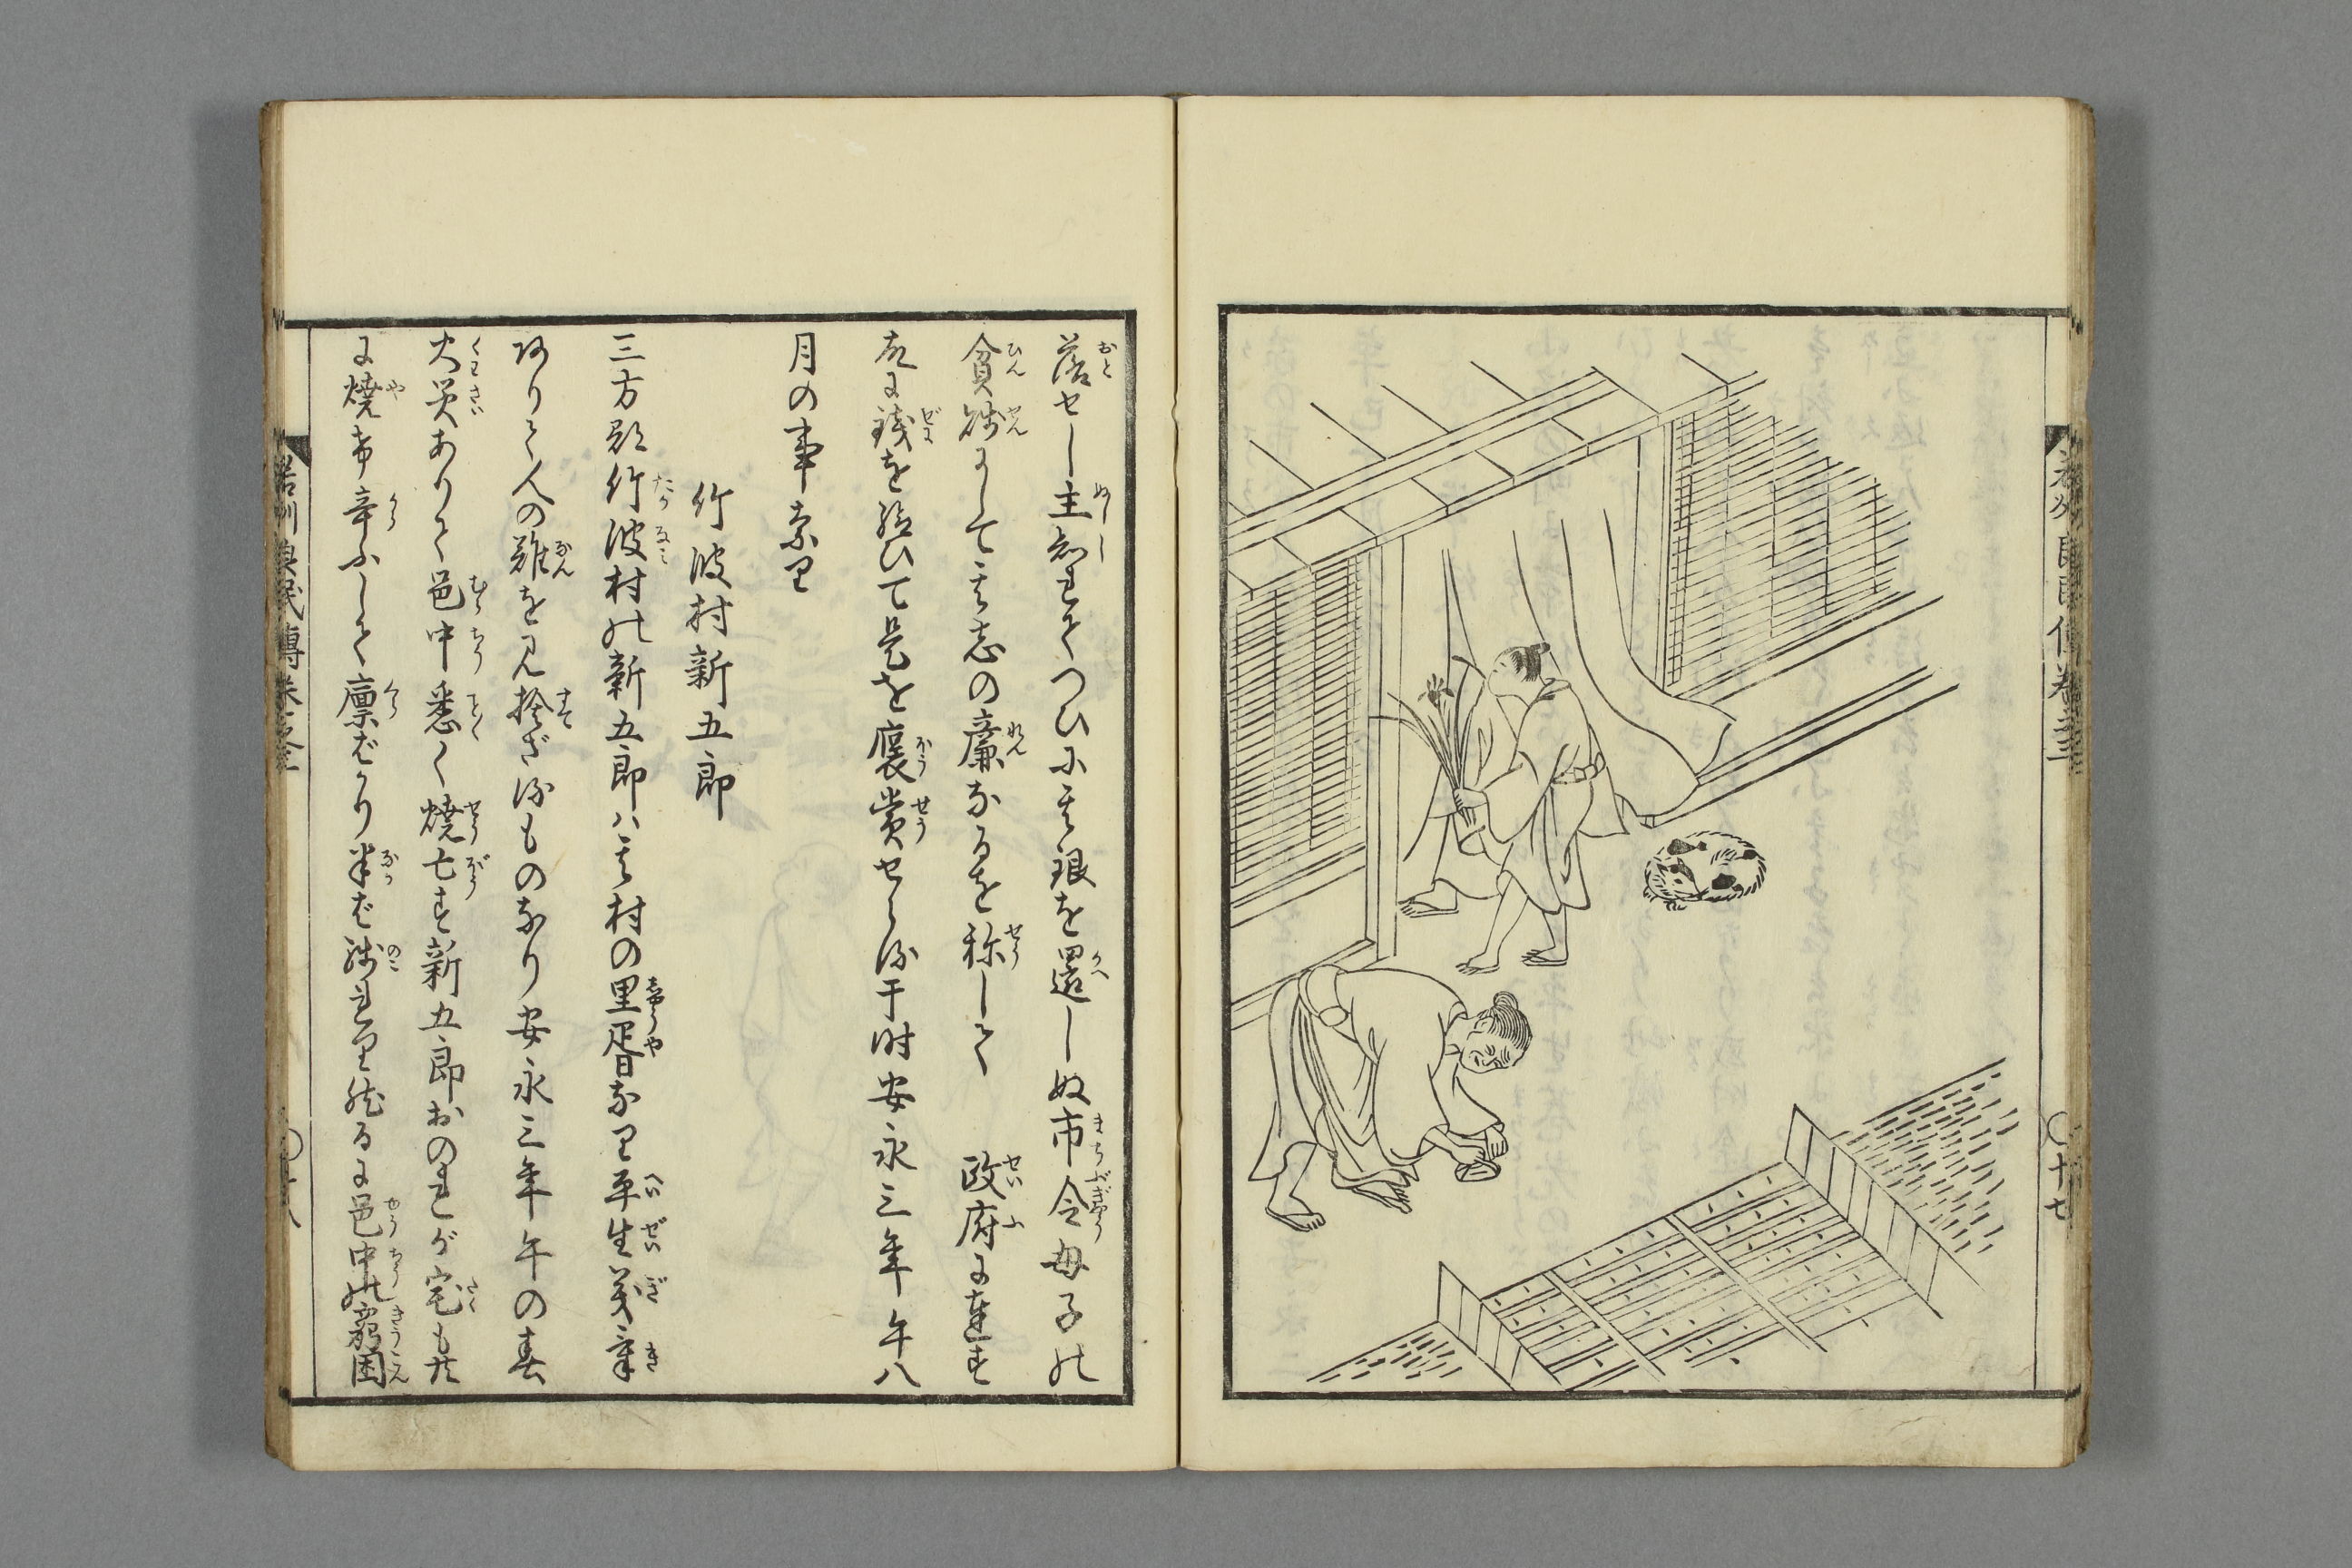 若州良民傳卷之三
〇廿七
落せし主知れてつひに其銀を還しぬ市令母子の
貧賎にして其志の廉なるを称して　政府に達す
故に銭を給ひて是を褒賞せらる于時安永三年午八
月の事なり
竹波村新五郎
三方郡竹波村の新五郎ハ其村の里胥なり平生義気
ありて人の難を見捨ざるものなり安永三年午の春
火災ありて邑中悉く焼亡す新五郎おのれが宅も共
に焼け辛ふして廩ばかり半ば残れり然るに邑中の窮困
若州良民傳卷之三